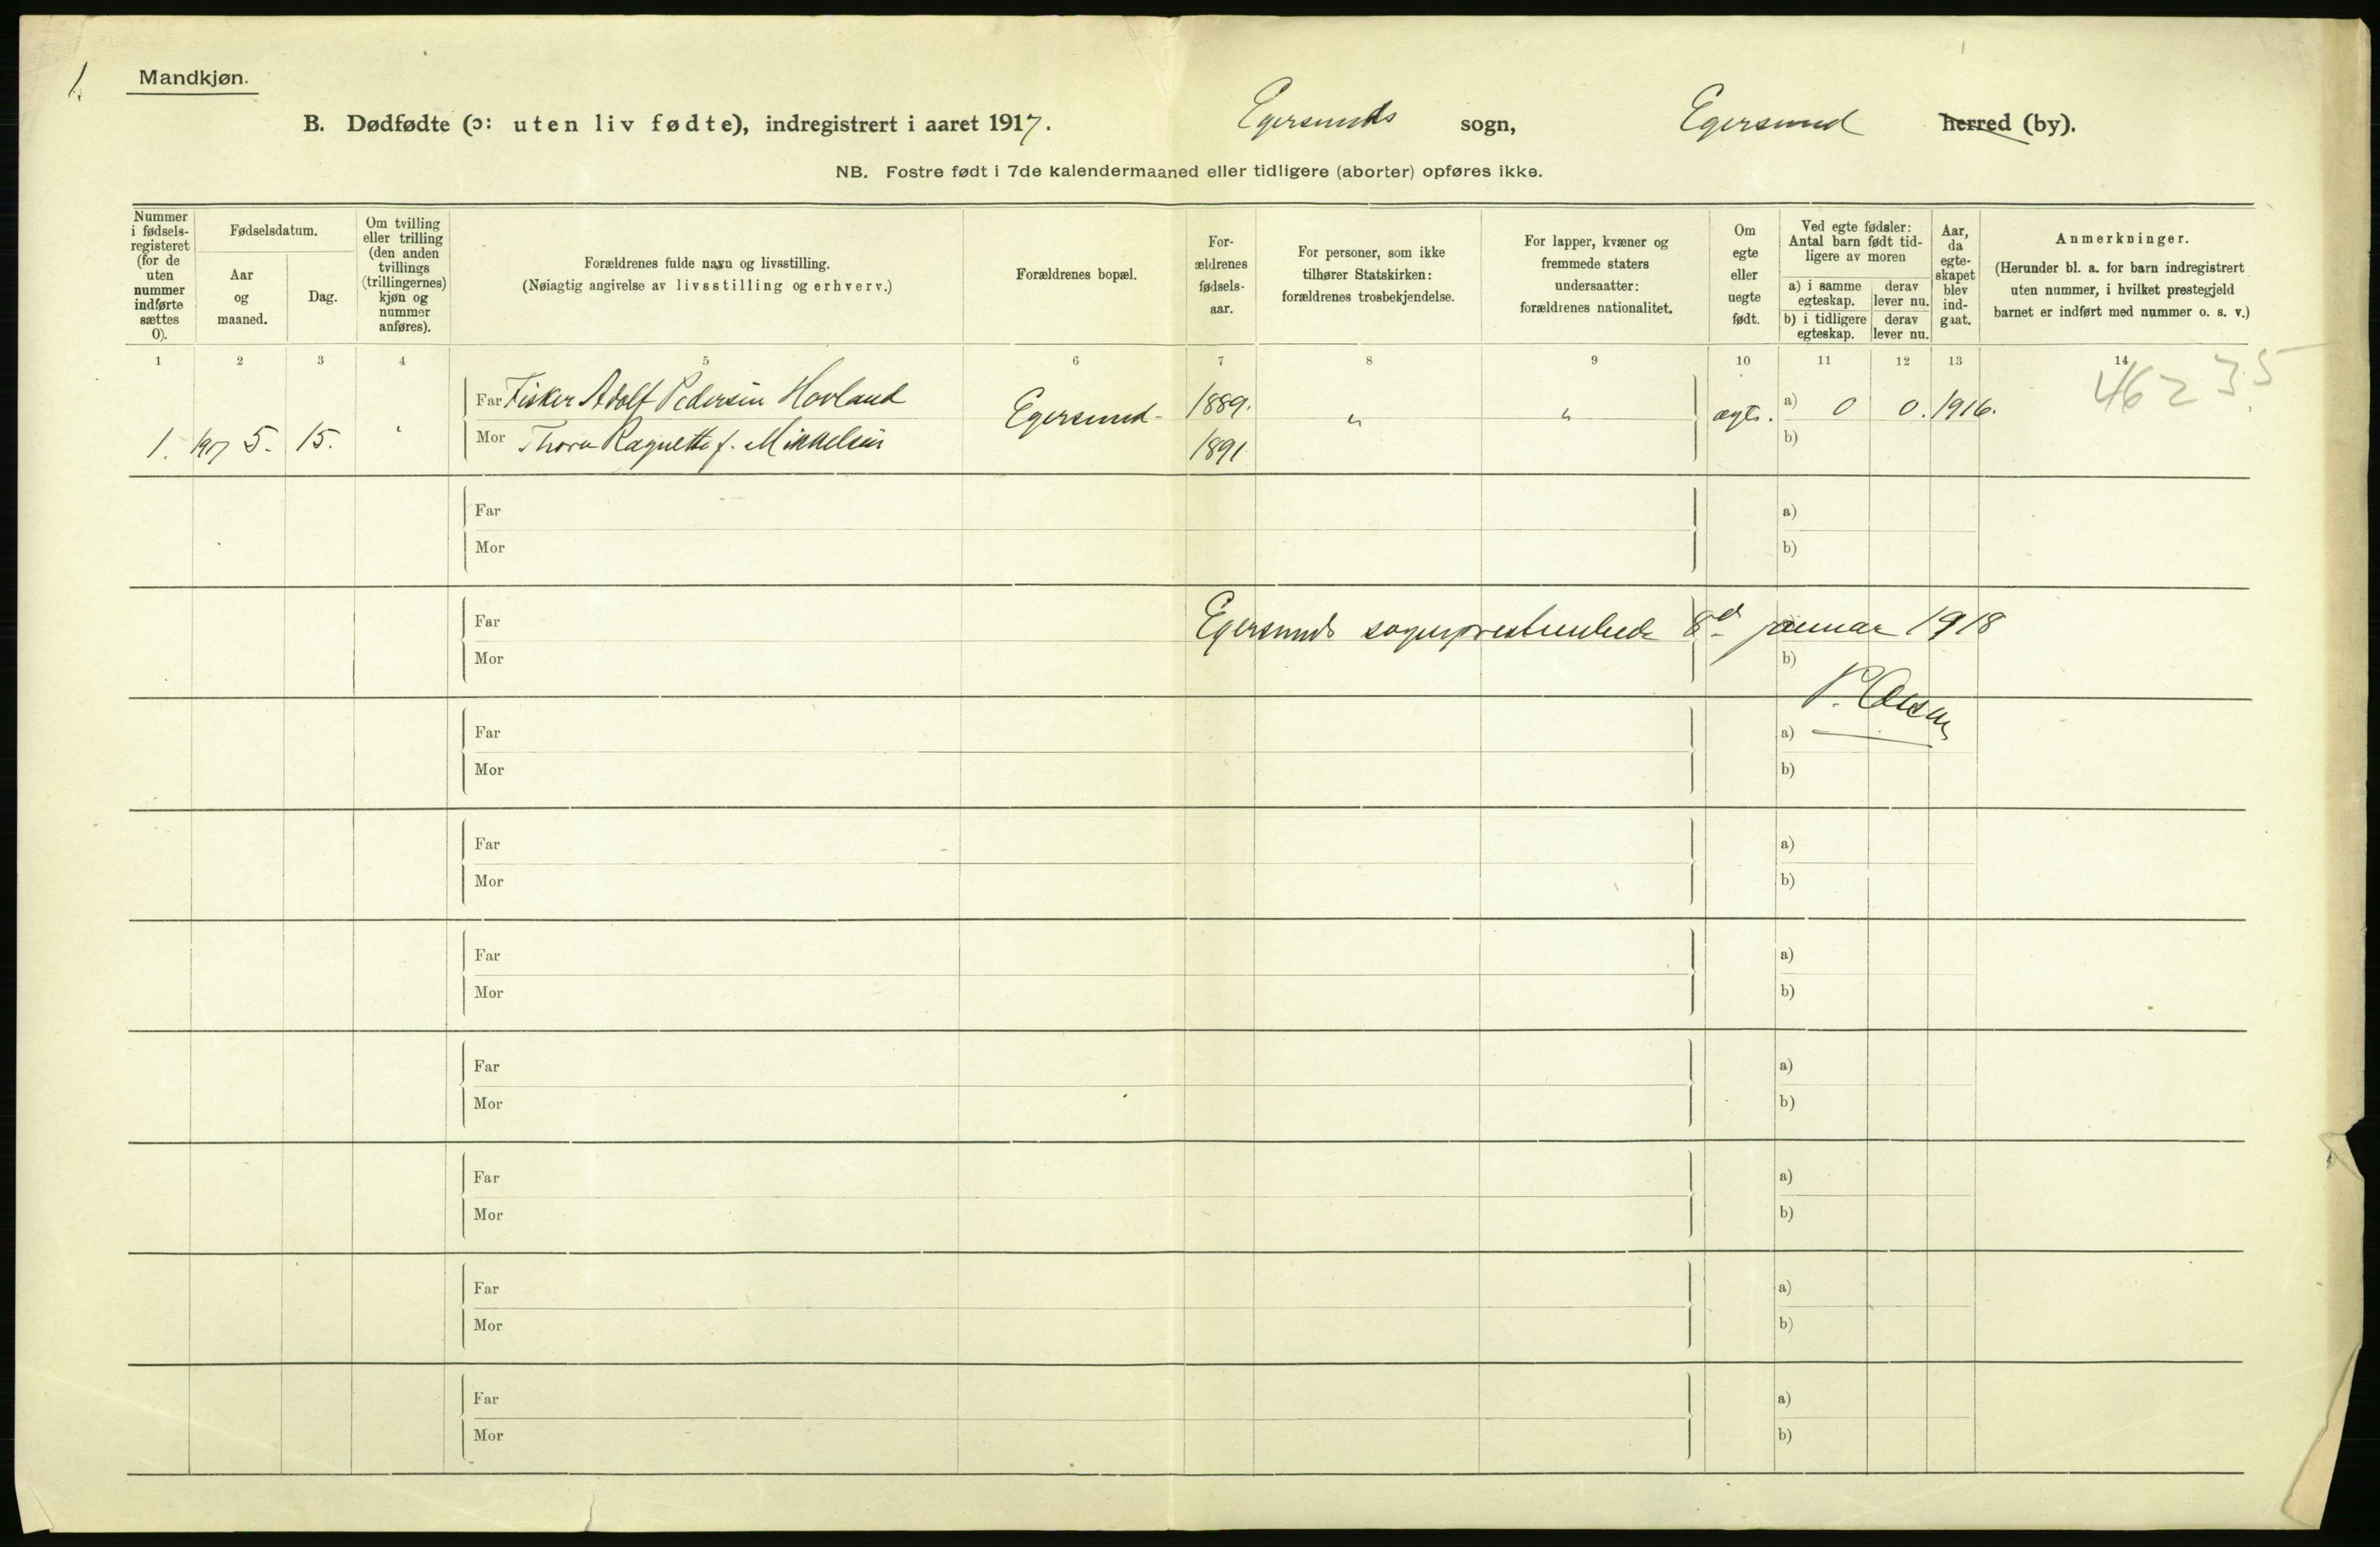 1.
Mandkjøn.
B. Dødfødte (ɔ: uten liv fødte), indregistrert i aaret 1917. Egersunds sogn, Egersund herred (by).
NB. Fostre født i 7de kalendermaaned eller tidligere (aborter) opføres ikke.
Nummer
i fødsels-
registeret
(for de
uten
nummer
indførte
sættes
0).
Fødselsdatum.
Aar
og
maaned.
Dag.
Om tvilling
eller trilling
(den anden
tvillings
(trillingernes)
kjøn og
nummer
anføres).
Forældrenes fulde navn og livsstilling.
(Nøiagtig angivelse av livsstilling og erhverv.)
Forældrenes bopæl.
For-
ældrenes
fødsels-
aar.
For personer, som ikke
tilhører Statskirken:
forældrenes trosbekjendelse.
For lapper, kvæner og
fremmede staters
undersaatter:
forældrenes nationalitet.
Om
egte
eller
uegte
født.
Ved egte fødsler:
Antal barn født tid-
ligere av moren
a) i samme
egteskap.
derav
lever nu.
b) i tidligere
egteskap.
derav
lever nu.
Aar,
da
egte-
skapet
blev
ind-
gaat.
Anmerkninger.
(Herunder bl. a. for barn indregistrert
uten nummer, i hvilket prestegjeld
barnet er indført med nummer o. s. v.)
1 2 3 4 5 6 7 8 9 10 11 12 13 14
46235
Far Fisker Adolf Pedersen Hovland Egersund 1889. " " ægte. a) 0 0. 1916.
1. 1917 5. 15. " Mor Thora Ragnette f. Mikkelsen 1891 b)
Far a)
Mor b)
Far Egersunds sogneprestembede 8d januar 1918
Mor b)
Far a)
Mor b)
Far a)
Mor b)
Far a)
Mor b)
Far a)
Mor b)
Far a)
Mor b)
Far a)
Mor b)
Far a)
Mor b)